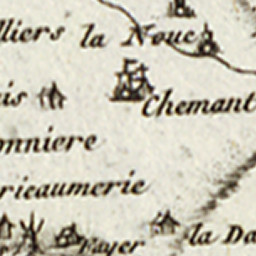 lliers la Noue
is Chemant
onniere
ricaumerie
Fayer la Da